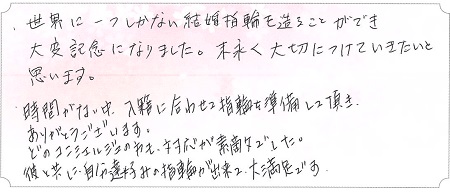 世界に一つしかない結婚指輪を造ることができ
大変記念になりました。末永く大切につけていきたいと
思います。
時間がない中、入籍に合わせて指輪を準備して頂き、
ありがとうございます。
どのコンシェルジュの方も、対応が素敵でした。
彼と共に自分達好みの指輪が出来て、大満足です。